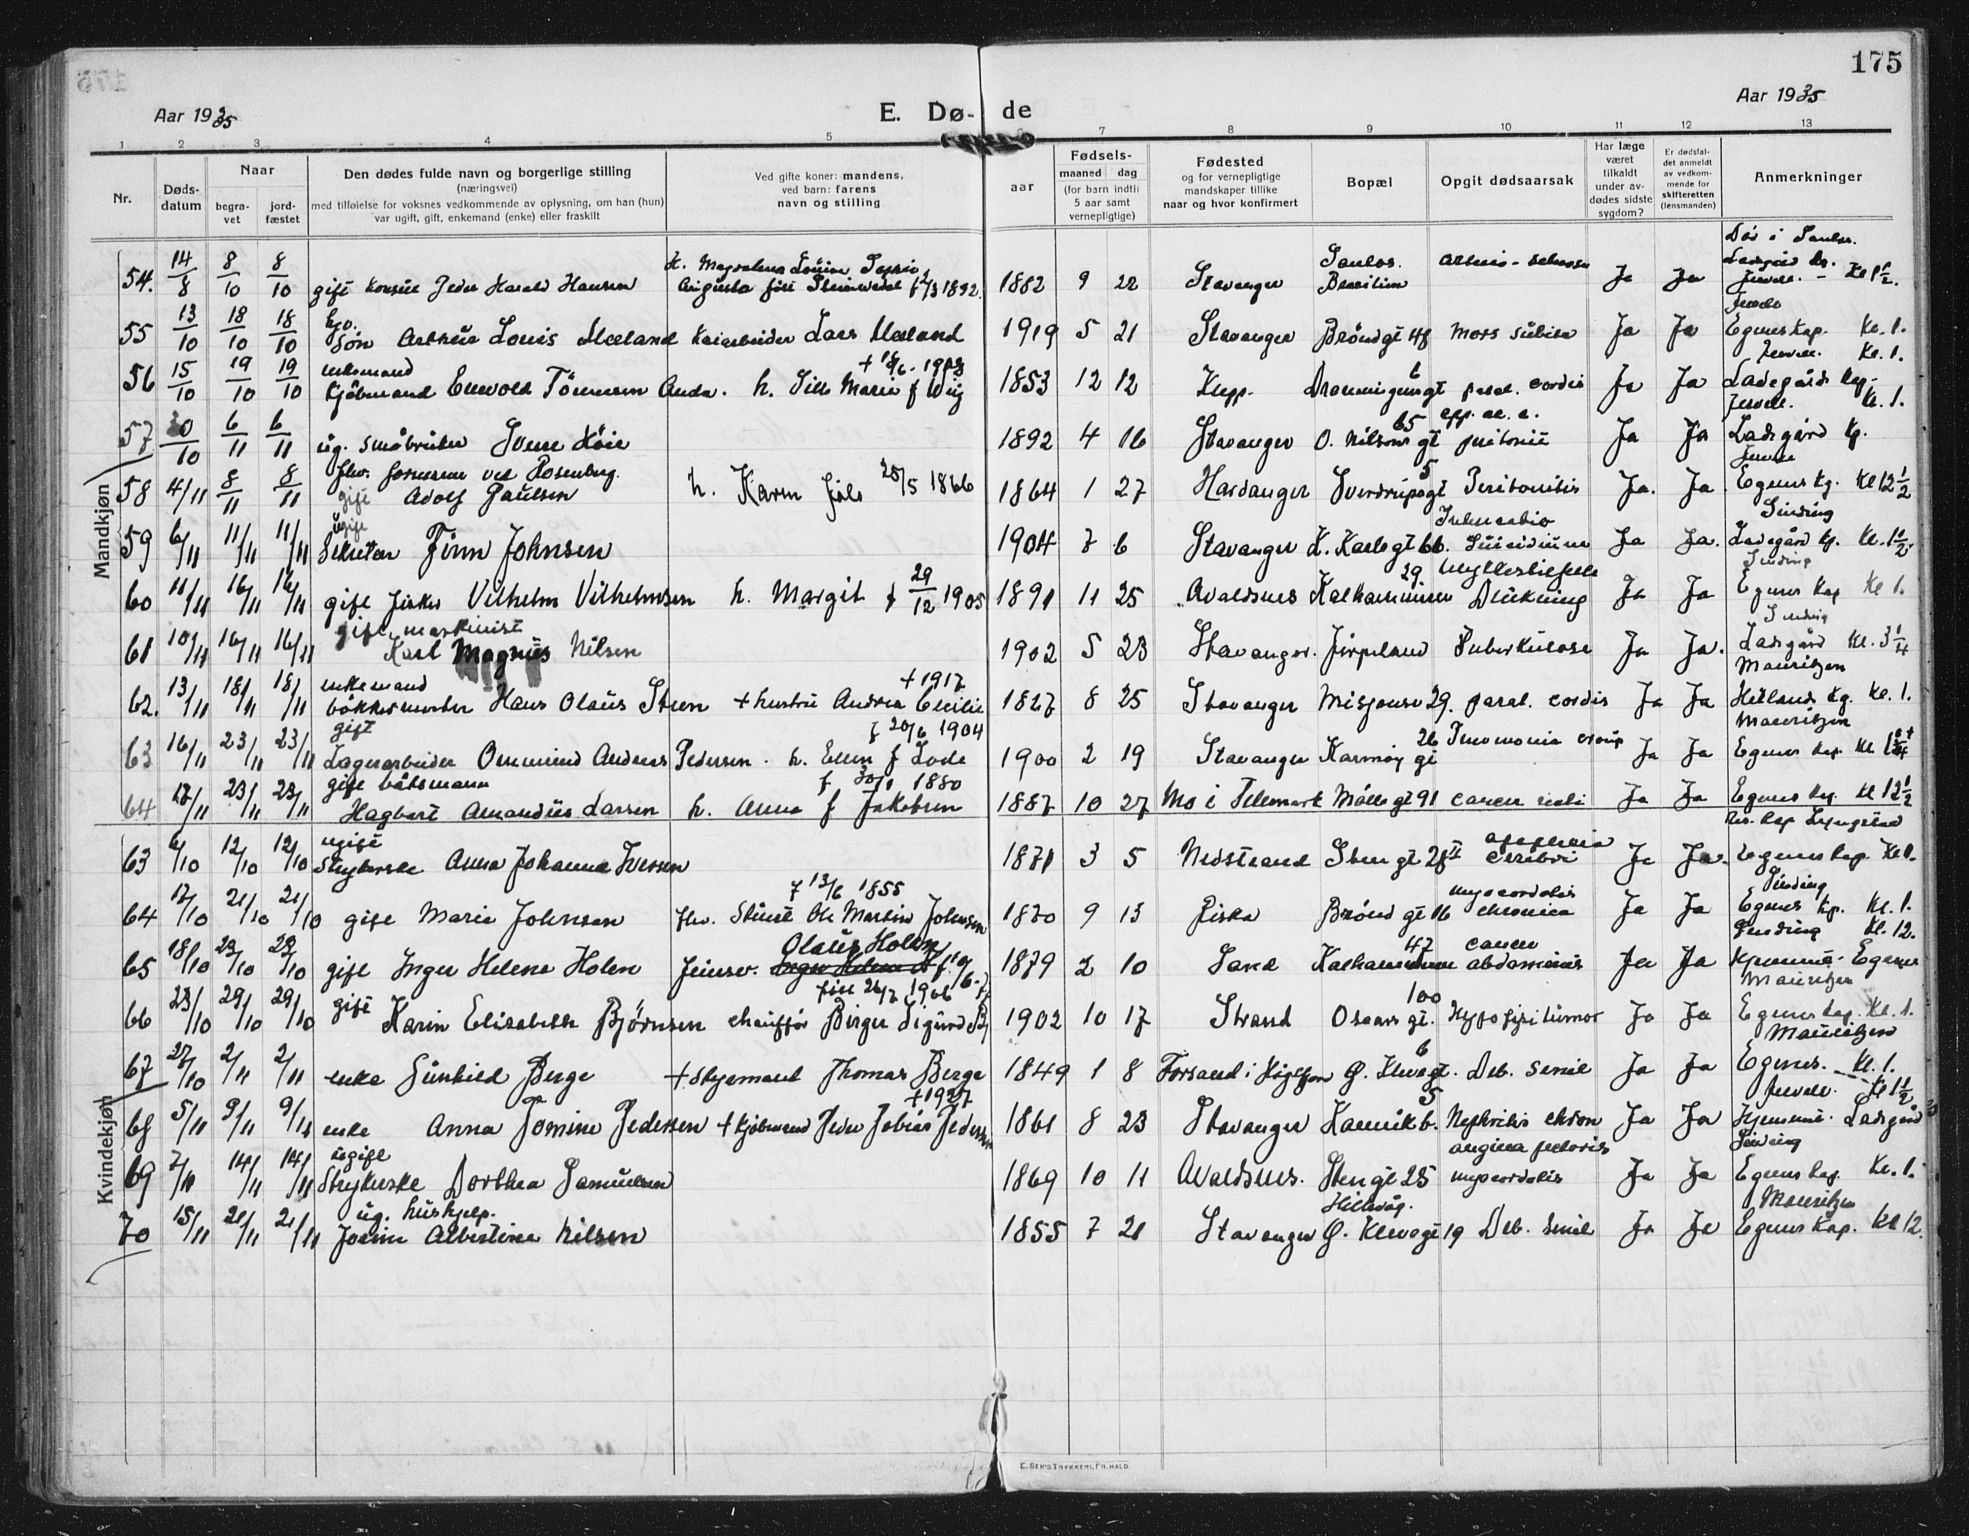 175
Aar 1935
E. Dø- de
Aar 1935
1 2 3 4 5 6 7 8 9 10 11 12 13
Nr.
Døds-
datum
Naar
begra-
vet
jord-
fæstet
Den dødes fulde navn og borgerlige stilling
(næringsvei)
med tilføielse for voksnes vedkommende av oplysning, om han (hun)
var ugift, gift, enkemand (enke) eller fraskilt
Ved gifte koner: mandens,
ved barn: farens
navn og stilling
Fødsels-
aar
maaned dag
(for barn indtil
5 aar samt
vernepligtige)
Fødested
og for vernepligtige
mandskaper tillike
naar og hvor konfirmert
Bopæl
Opgit dødsaarsak
Har læge
været
tilkaldt
under av-
dødes sidste
sygdom?
Er dødsfal-
det anmeldt
av vedkom-
mende for
skifteretten
(lensmanden)
Anmerkninger
Mandkjøn
54. 14/8 8/10 8/10 gift konsul Peder Harald Hansen 1882 9 22 Stavanger Santos. Brasilien Ja Ja
55 13/10 18/10 18/10 Søn Arthur Louis Mæland Kaiarbeider Lars Mæland 1919 5 21 Stavanger Brøndgt 48 Mors subita Ja Ja Egenes Kap. Kl. 1.
56 15/10 19/10 19/10 enkemand Kjøbmand Enevold Tönnesen Anda. 1853 12 12 Klepp. Dronningensgt 6 paral. cordis Ja Ja Ladegård Kap. Kl. 1.
57 30/10 6/11 6/11 ug. småbruker Sverre Høie 1892 4 16 Stavanger O. Nilsens gt 65 peritonit Ja Ja Ladegård Kp.
58 4/11 8/11 8/11 fhv. formann ved Rosenberg. gift Adolf Paulsen h. Karen født 28/5 1866 1864 1 27 Hardanger Sverdrupsgt 5 Peritonitis Ja. Ja. Egenes Kg. Kl 12 1/2
59 6/11 11/11 11/11 ugift Sekretær Finn Johnsen 1904 7 6 Stavanger K. Karls gt 66. Suicidium Ja Ja. Ladegård Kp. Kl. 1 1/2.
60 11/11 16/11 16/11 gift fisker Vilhelm Vilhelmsen h. Margit f 29/12 1905 1891 11 25 Avaldsnes Kalhammeren 29. Drukning Ja Ja Egenes Kap Kl 1.
61 10/11 16/11 16/11 gift maskinist Karl Magnus Nilsen 1902 5 23 Stavanger. Jørpeland Tuberkulose Ja Ja. Ladegård Kl. 3 1/4
62. 13/11 18/11 18/11 enkemand bøkkermester Hans Olaus Steen + hustru Andrea Cecilie + 1917 1827 8 25 Stavanger Misjonsv 29. paral. cordis Ja Ja Hetlands Kg. Kl. 1.
63 16/11 23/11 23/11 gift Lagerarbeider Ommund Andreas Pedersen. h. Ellen f Lode f 20/6 1904 1900 2 19 Stavanger Karmøy gt 26 Pneumonia croup Ja Ja Egenes Kap.
64 17/11 23/11 23/11 gift båtsmann Hagbart Amandus Larsen h. Anna f Jakobsen 1887 10 27 Mo i Telemark Møllegt 91 cancer Ja Ja Egenes Kap Kl 12 1/2
Kvindekjøn
63 6/10 12/10 12/10 ugift Strykerske Anna Johanna Iversen 1871 3 5 Nedstrand Stengt 28 apoplexia cerebri Ja Ja. Egenes Kap. Kl 1.
64 17/10 21/10 21/10 gift Marie Johnsen fhv. Stuert Ole Martin Johnsen f 13/6 1855 1870 9 13 Riska Brønd gt 16 myocarditis chronica Ja Ja Egenes Kp. Kl. 1.
65 18/10 23/10 23/10 gift Inger Helene Holen Olaus Holen 1879 2 10 Sand Kalhammeren 47 cancer abdominis Ja Ja Hjemme - Egenes Kl. 12.
66 23/10 29/10 29/10 gift Karin Elisabeth Bjørnsen chauffør Birger Sigurd Bj født 26/7 1906 1902 10 17 Strand Oscars gt. 100 Hypofysetumor Ja Ja Egenes Kap. Kl. 1.
67 27/10 2/11 2/11 enke Gunhild Berge + Styrmand Thomas Berge 1849 1 8 Forsand i Høgsfjord Ø. Klevegt. 6 Deb. Senil Ja Ja Egenes. Kl. 1.
68 5/11 9/11 9/11 enke Anna Jomine Pedersen + Kjøbmand Peder Tobias Pedersen + 1927 1861 8 23 Stavanger Kannikb. 5 Nephritis chron Ja Ja Hjemme. Ladegård Kl 1 1/2
69 7/11 14/11 14/11 ugift Strykerske Dorthea Samuelsen 1869 10 11 Avaldsnes. Stengt 25 angina pectoris myocarditis Ja Ja Egenes Kap. Kl. 1.
70 15/11 21/11 21/11 ug. hushjelp. Josine Albertine Nilsen 1855 7 21 Stavanger Hillevåg. Ø. Klevegt 19 Deb. Senil Ja Ja Egenes Kap. Kl 12.
E. SEM'S TRYKKERI, FR.HALD.